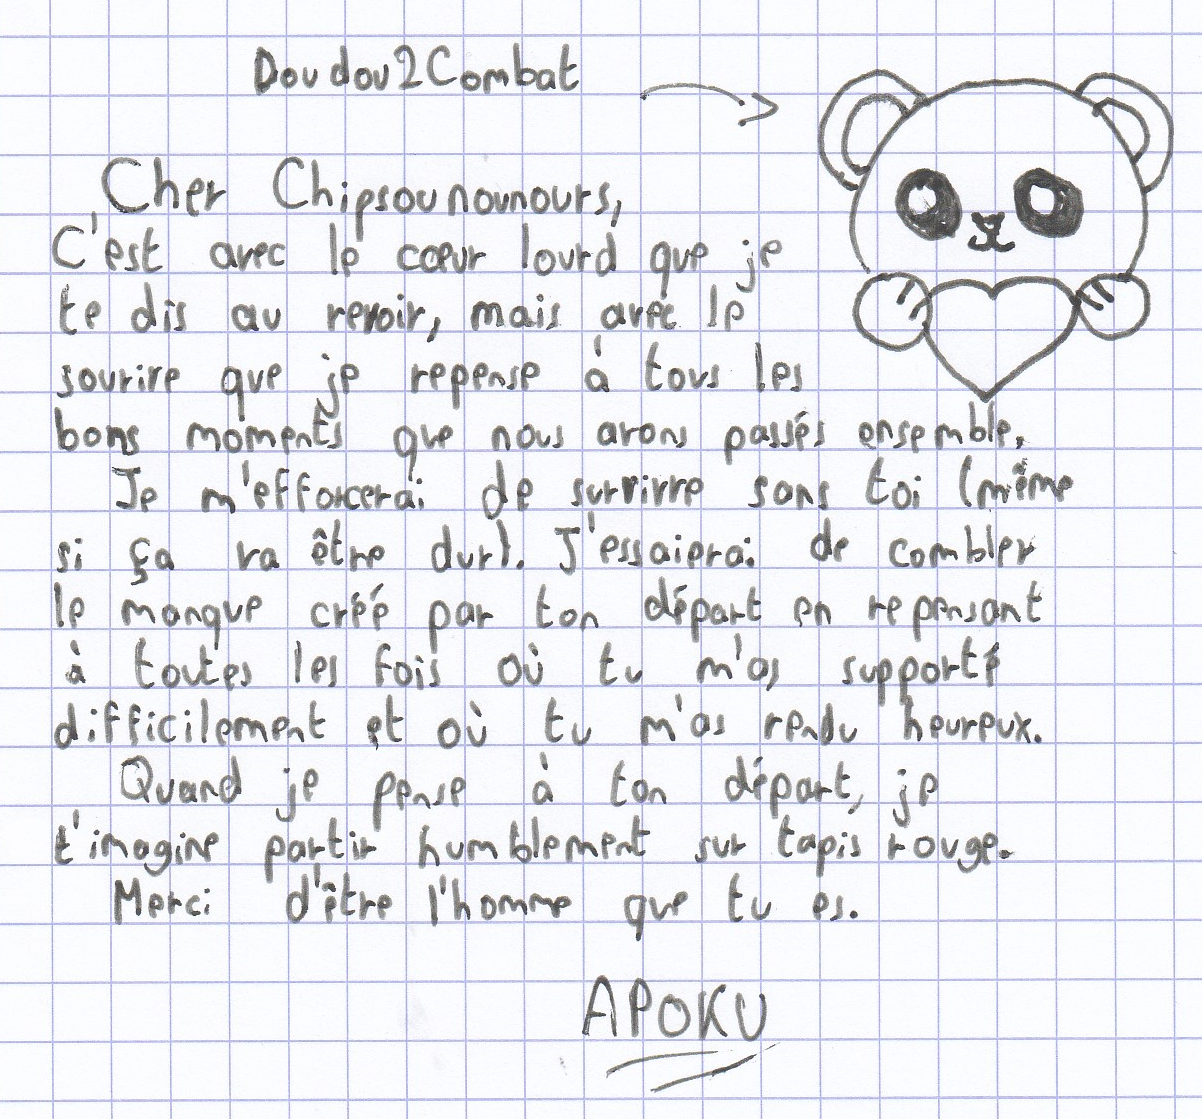 Doudou2Combat
Cher Chipsounounours,
C'est avec le cœur lourd que je
te dis au revoir, mais avec le
sourire que je repense à tous les
bons moments que nous avons passés ensemble.
Je m'efforcerai de survivre sans toi (même
si ça va être dur). J'essaierai de combler
le manque créé par ton départ en repensant
à toutes les fois où tu m'as supporté
difficilement et où tu m'as rendu heureux.
Quand je pense à ton départ, je
t'imagine partir humblement sur tapis rouge.
Merci d'être l'homme que tu es.
APOKU